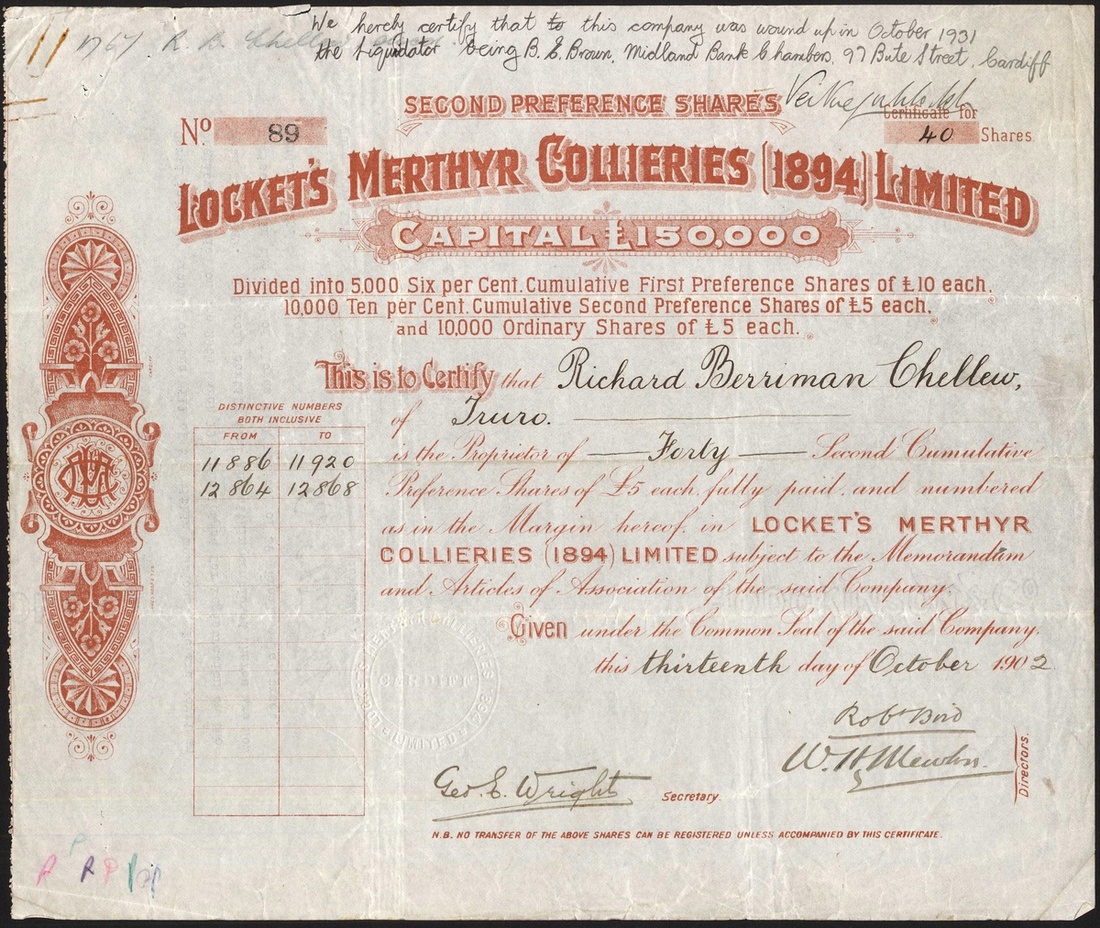 We hereby certify that to this company was wound up in October 1931
the Liquidator being B. E. Brown, Midland Bank Chambers, 97 Bute Street, Cardiff
1767 R. B. Chellew
SECOND PREFERENCE SHARES
Certificate for
No. 89
40 Shares
LOCKET'S MERTHYR COLLIERIES (1894) LIMITED
CAPITAL £150,000
Divided into 5,000 Six per Cent. Cumulative First Preference Shares of £10 each,
10,000 Ten per Cent. Cumulative Second Preference Shares of £5 each,
and 10,000 Ordinary Shares of £5 each.
This is to Certify that Richard Berriman Chellew,
of Truro.
is the Proprietor of Forty Second Cumulative
Preference Shares of £5 each, fully paid, and numbered
as in the Margin hereof, in LOCKET'S MERTHYR
COLLIERIES (1894) LIMITED subject to the Memorandum
and Articles of Association of the said Company.
DISTINCTIVE NUMBERS
BOTH INCLUSIVE
FROM TO
11886 11920
12864 12868
Given under the Common Seal of the said Company,
this thirteenth day of October 1902
CARDIFF
Robt Bird
Directors.
Geo. E. Wright Secretary.
N.B. NO TRANSFER OF THE ABOVE SHARES CAN BE REGISTERED UNLESS ACCOMPANIED BY THIS CERTIFICATE.